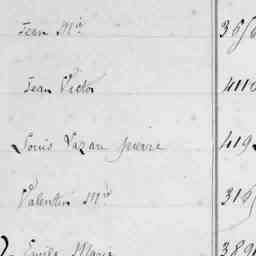 Jean Mie
Jean Victor 4110
Louis Lazare Pierre 419
Valentin Mie 316
Emile Marie 389